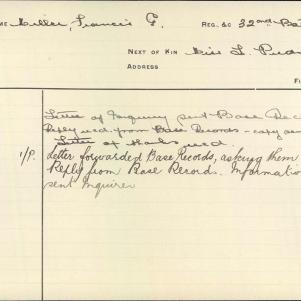 ME Miller, Francis G. REG. &C 32nd Bat
NEXT OF KIN Miss L.
ADDRESS
F
Letter of Inquiry sent Base Rec
Reply recd. from Base Records - copy
Letter of thanks recd.
1/P. Letter forwarded Base Records, asking them
Reply from Base Records. Informatio
sent Inquirer